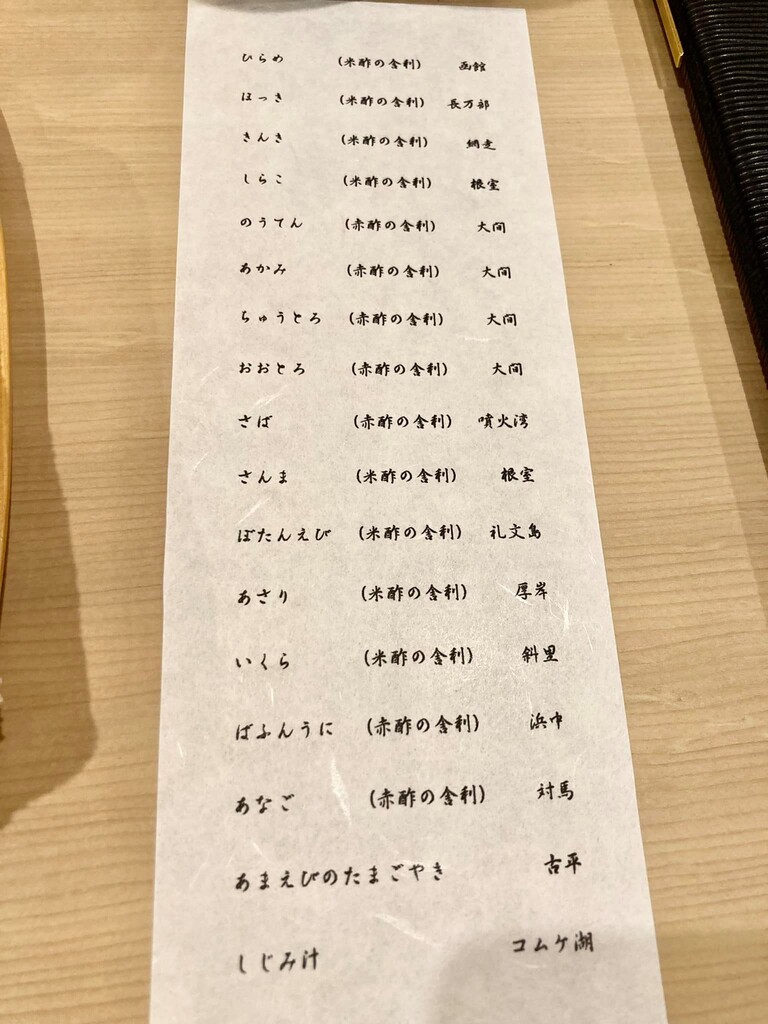 ひらめ (米酢の舎利) 函館
ほっき (米酢の舎利) 長万部
きんき (米酢の舎利) 網走
しらこ (米酢の舎利) 根室
のうてん (赤酢の舎利) 大間
あかみ (赤酢の舎利) 大間
ちゅうとろ (赤酢の舎利) 大間
おおとろ (赤酢の舎利) 大間
さば (赤酢の舎利) 噴火湾
さんま (米酢の舎利) 根室
ぼたんえび (米酢の舎利) 礼文島
あさり (米酢の舎利) 厚岸
いくら (米酢の舎利) 斜里
ばふんうに (赤酢の舎利) 浜中
あなご (赤酢の舎利) 対馬
あまえびのたまごやき 古平
しじみ汁 コムケ湖